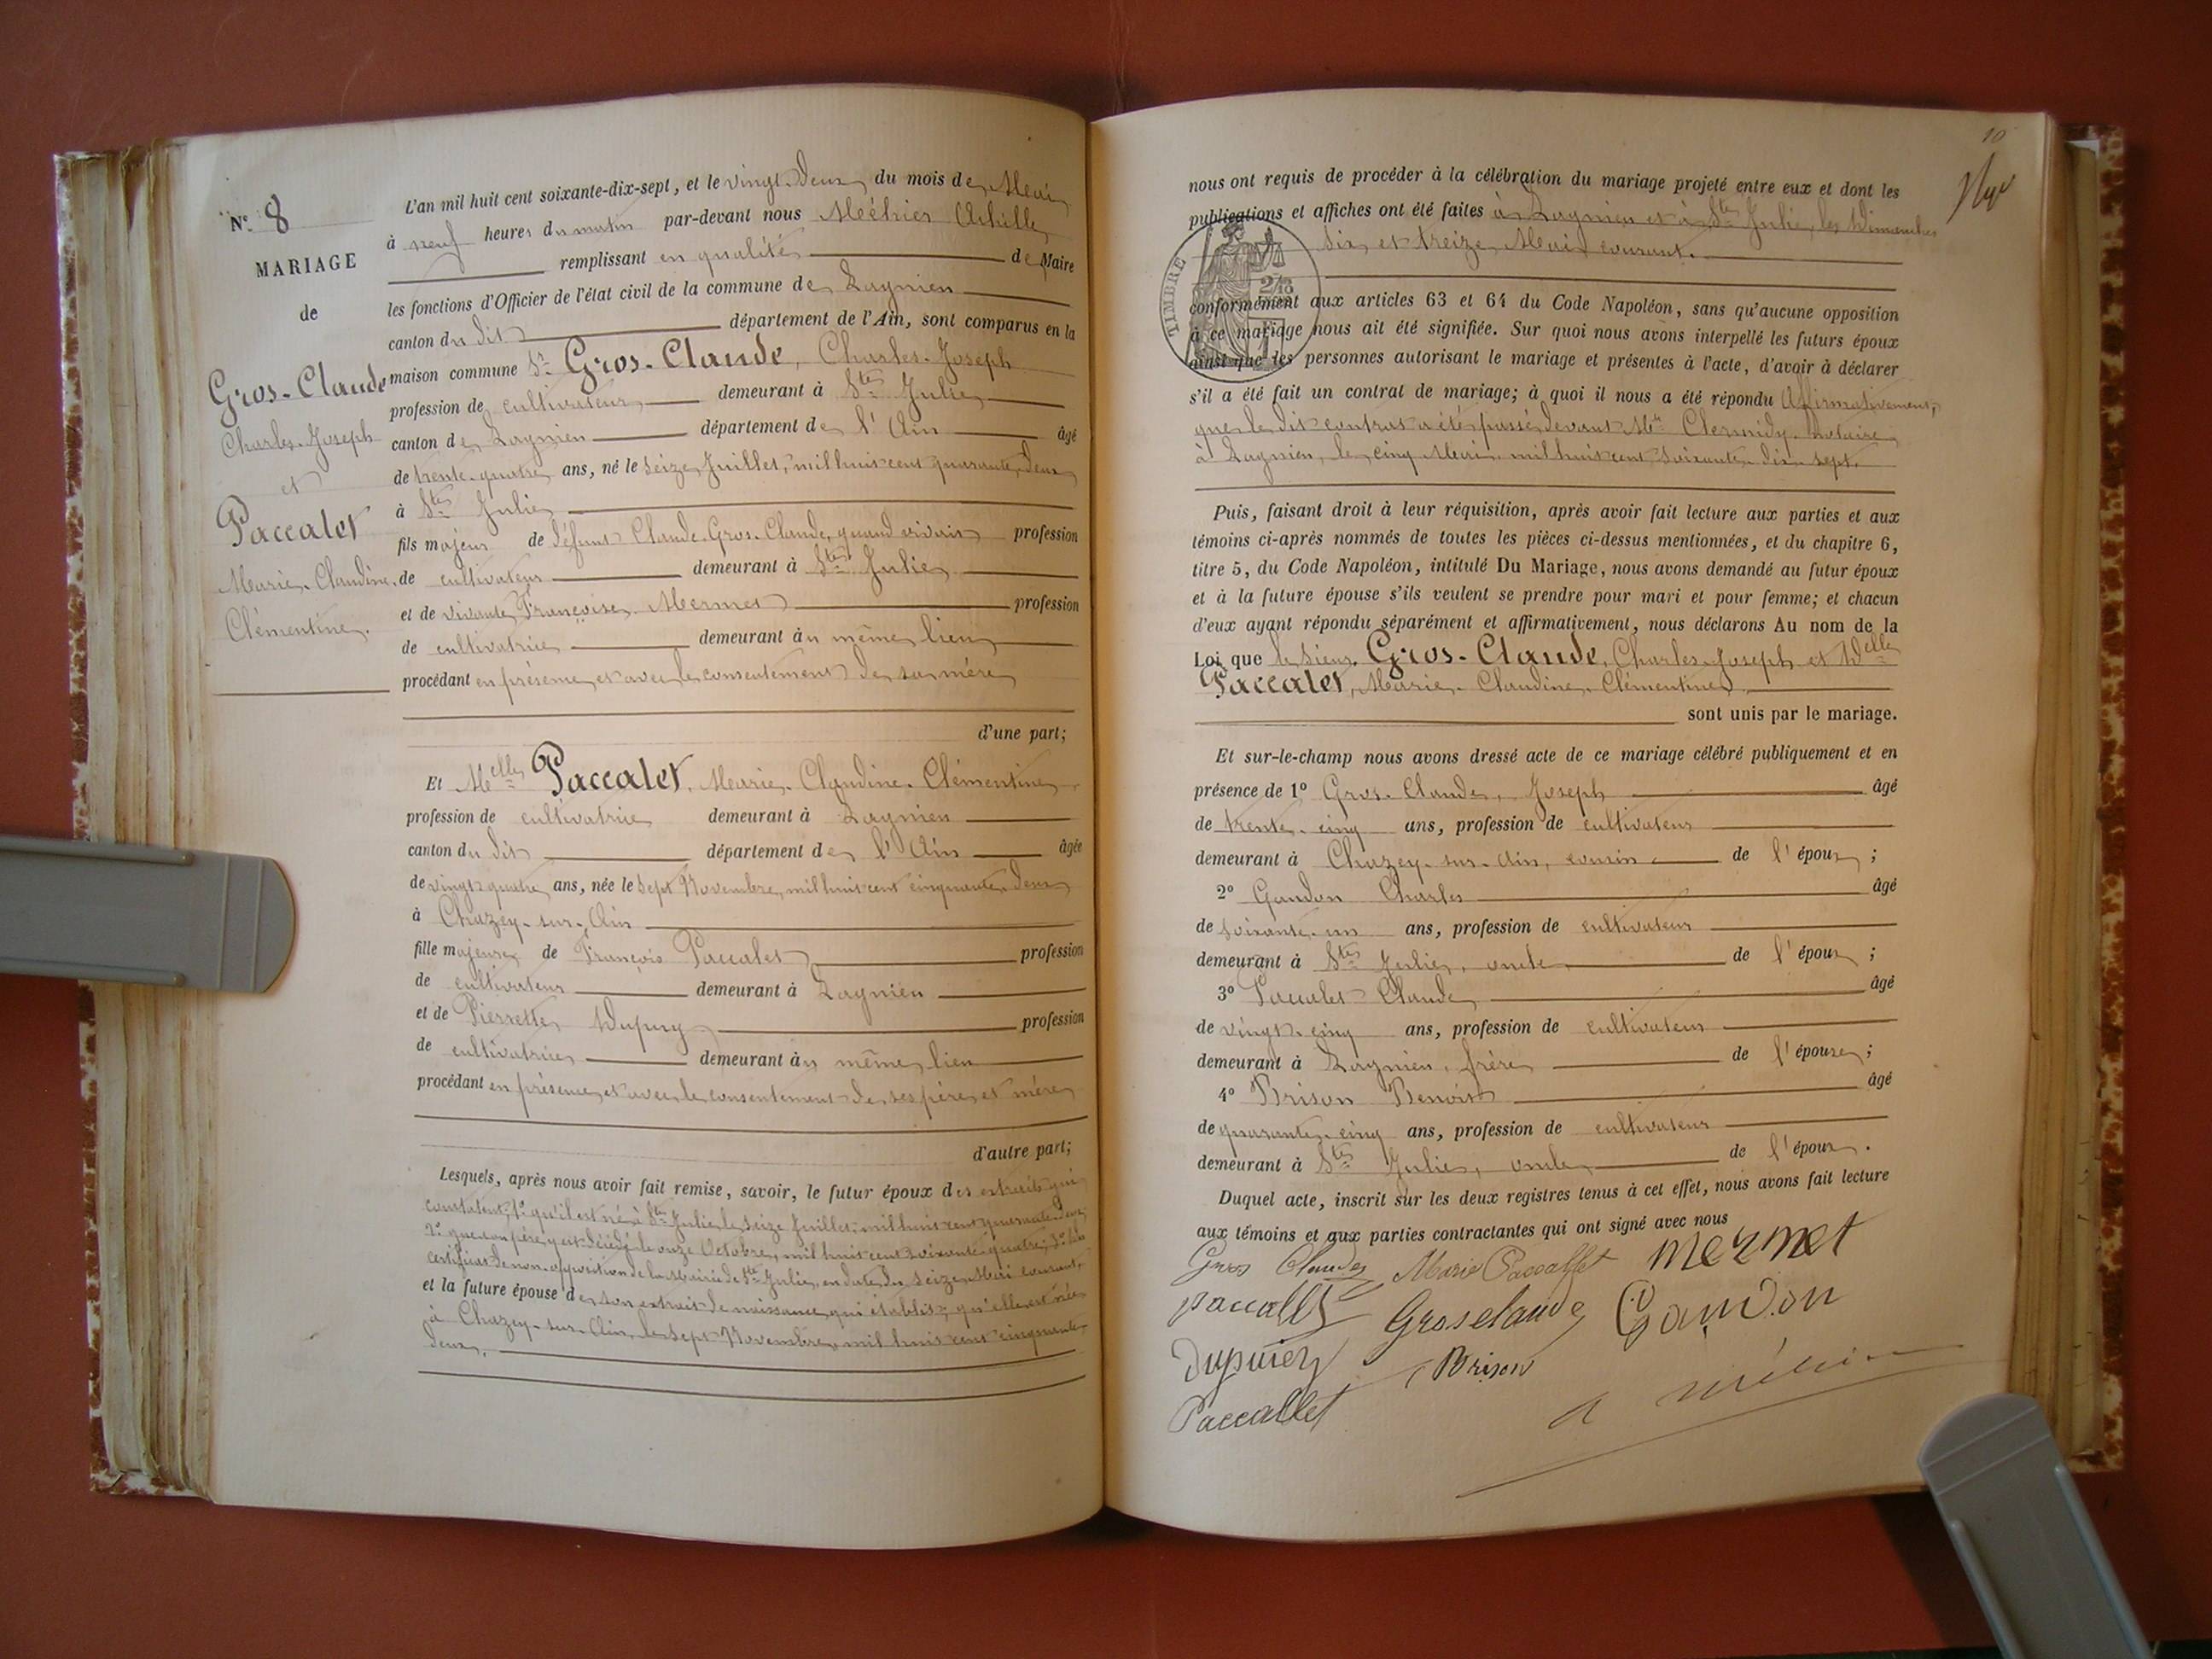 N° 8
MARIAGE
de
Gros-Claude
Charles-Joseph
et
Paccalet
Marie-Claudine
Clémentine.
L'an mil huit cent soixante-dix-sept, et le vingt-deux du mois de Mai
à neuf heures du matin par-devant nous Méhier Achille
remplissant en qualité de Maire
les fonctions d'Officier de l'état civil de la commune de Lagnieu
canton du dit département de l'Ain, sont comparus en la
maison commune Sr Gros-Claude, Charles-Joseph
profession de cultivateur demeurant à Ste Julie
canton de Lagnieu département de l'Ain âgé
de trente-quatre ans, né le seize Juillet, mil huit cent quarante-deux
à Ste Julie
fils majeur de défunt Claude Gros-Claude, quand vivait profession
de cultivateur demeurant à Ste Julie
et de vivante Françoise Mermet profession
de cultivatrice demeurant au même lieu
procédant en présence et avec le consentement de sa mère
d'une part;
Et Melle Paccalet, Marie-Claudine-Clémentine
profession de cultivatrice demeurant à Lagnieu
canton du dit département de l'Ain âgée
de vingt-quatre ans, née le sept Novembre, mil huit cent cinquante-deux
à Chazey-sur-Ain
fille majeure de François Paccalet profession
de cultivateur demeurant à Lagnieu
et de Pierrette Dupuy profession
de cultivatrice demeurant au même lieu
procédant en présence et avec le consentement de ses père et mère
d'autre part;
Lesquels, après nous avoir fait remise, savoir, le futur époux des extraits qui
constatent, 1° qu'il est né à Ste Julie le seize Juillet mil huit cent quarante-deux
2° que son père y est décédé le onze Octobre, mil huit cent soixante-quatre; 3° du
certificat de non-opposition de la Mairie de Ste Julie, en date du seize Mai courant,
et la future épouse de son extrait de naissance qui établit qu'elle est née
à Chazey-sur-Ain, le sept Novembre, mil huit cent cinquante-
deux.
10
nous ont requis de procéder à la célébration du mariage projeté entre eux et dont les
publications et affiches ont été faites à Lagnieu et à Ste Julie, les Dimanches
six et treize Mai courant.
TIMBRE
conformément aux articles 63 et 64 du Code Napoléon, sans qu'aucune opposition
à ce mariage nous ait été signifiée. Sur quoi nous avons interpellé les futurs époux
ainsi que les personnes autorisant le mariage et présentes à l'acte, d'avoir à déclarer
s'il a été fait un contrat de mariage; à quoi il nous a été répondu Affirmativement,
que le dit contrat a été passé devant Me Clermidy, notaire
à Lagnieu, le cinq Mai, mil huit cent soixante-dix-sept.
Puis, faisant droit à leur réquisition, après avoir fait lecture aux parties et aux
témoins ci-après nommés de toutes les pièces ci-dessus mentionnées, et du chapitre 6,
titre 5, du Code Napoléon, intitulé Du Mariage, nous avons demandé au futur époux
et à la future épouse s'ils veulent se prendre pour mari et pour femme; et chacun
d'eux ayant répondu séparément et affirmativement, nous déclarons Au nom de la
Loi que le Sieur Gros-Claude, Charles-Joseph et Delle
Paccalet, Marie-Claudine-Clémentine
sont unis par le mariage.
Et sur-le-champ nous avons dressé acte de ce mariage célébré publiquement et en
présence de 1° Gros-Claude, Joseph âgé
de trente-cinq ans, profession de cultivateur
demeurant à Chazey-sur-Ain, cousin de l'époux;
2° Gandon Charles âgé
de soixante-un ans, profession de cultivateur
demeurant à Ste Julie, oncle de l'époux;
3° Paccalet Claude âgé
de vingt-cinq ans, profession de cultivateur
demeurant à Lagnieu, frère de l'épouse;
4° Brison Benoit âgé
de quarante-cinq ans, profession de cultivateur
demeurant à Ste Julie, oncle de l'époux.
Duquel acte, inscrit sur les deux registres tenus à cet effet, nous avons fait lecture
aux témoins et aux parties contractantes qui ont signé avec nous
Gros Claude Marie Paccallet mermet
paccallet Grosclaude Gandon
Dupuiez Brison
Paccallet a méhier